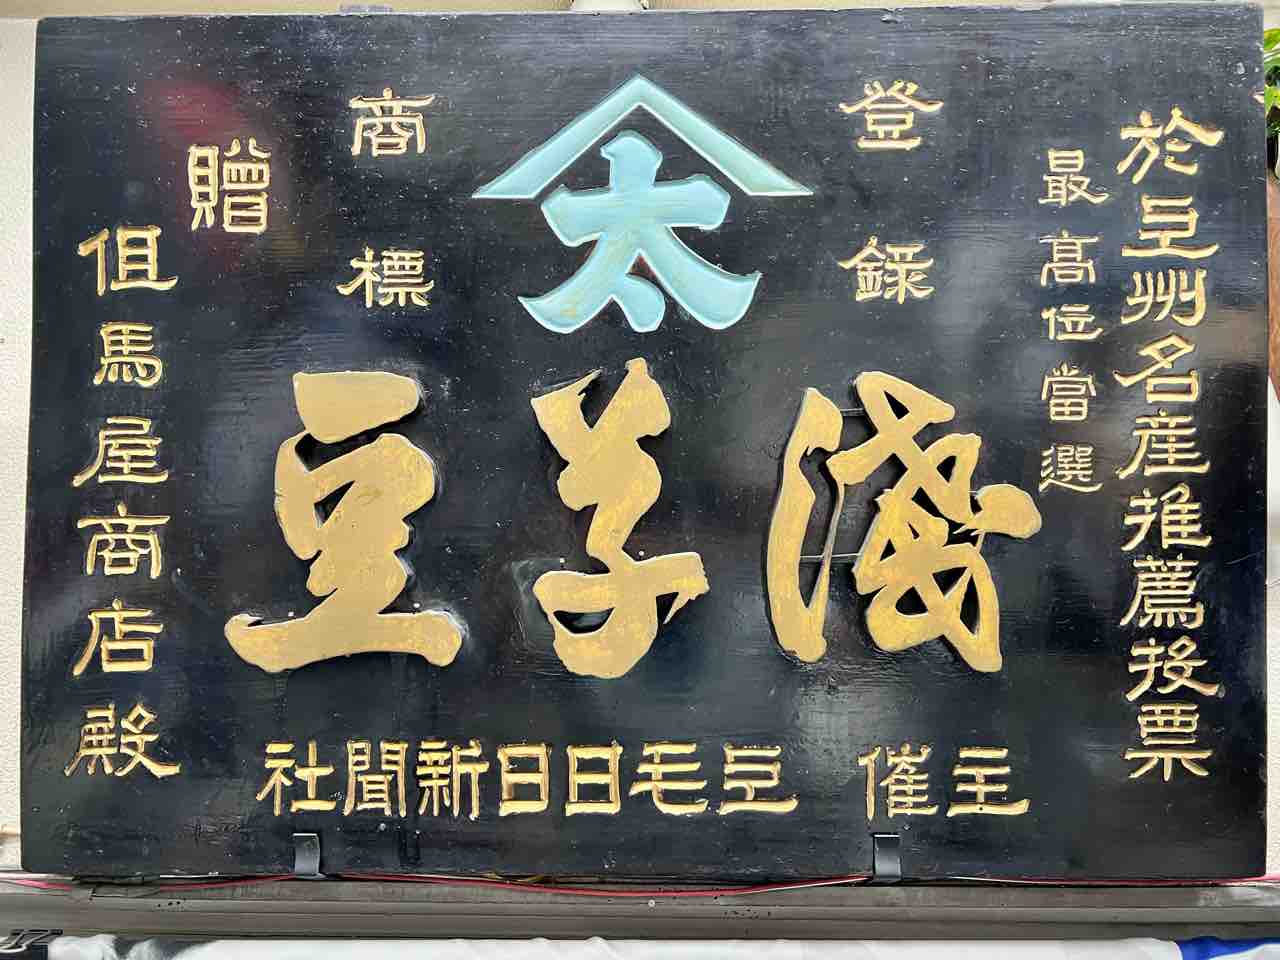 於上州名産推薦投票
最高位當選
登録
太
商標
淺草豆
主催 上毛日日新聞社
贈
但馬屋商店殿